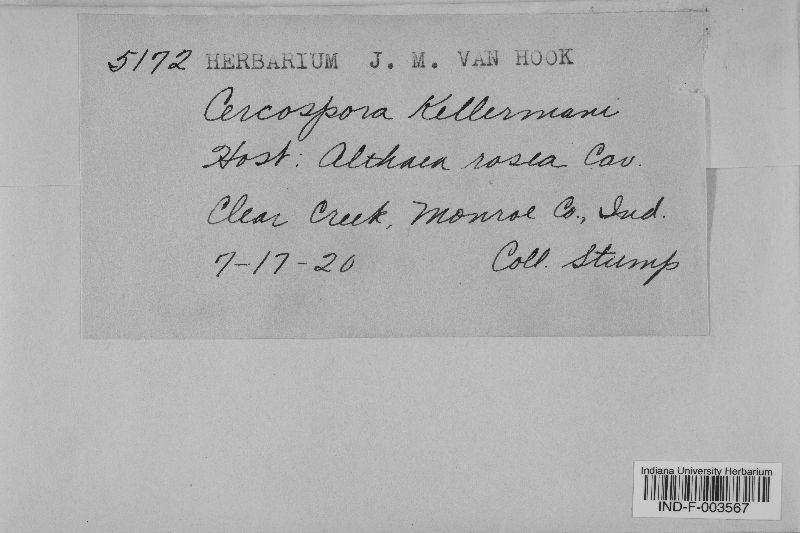 5172 HERBARIUM J. M. VAN HOOK
Cercospora Kellermani
Host: Althaea rosea Cav.
Clear Creek, Monroe Co., Ind.
7-17-20 Coll. Stump
Indiana University Herbarium
IND-F-003567